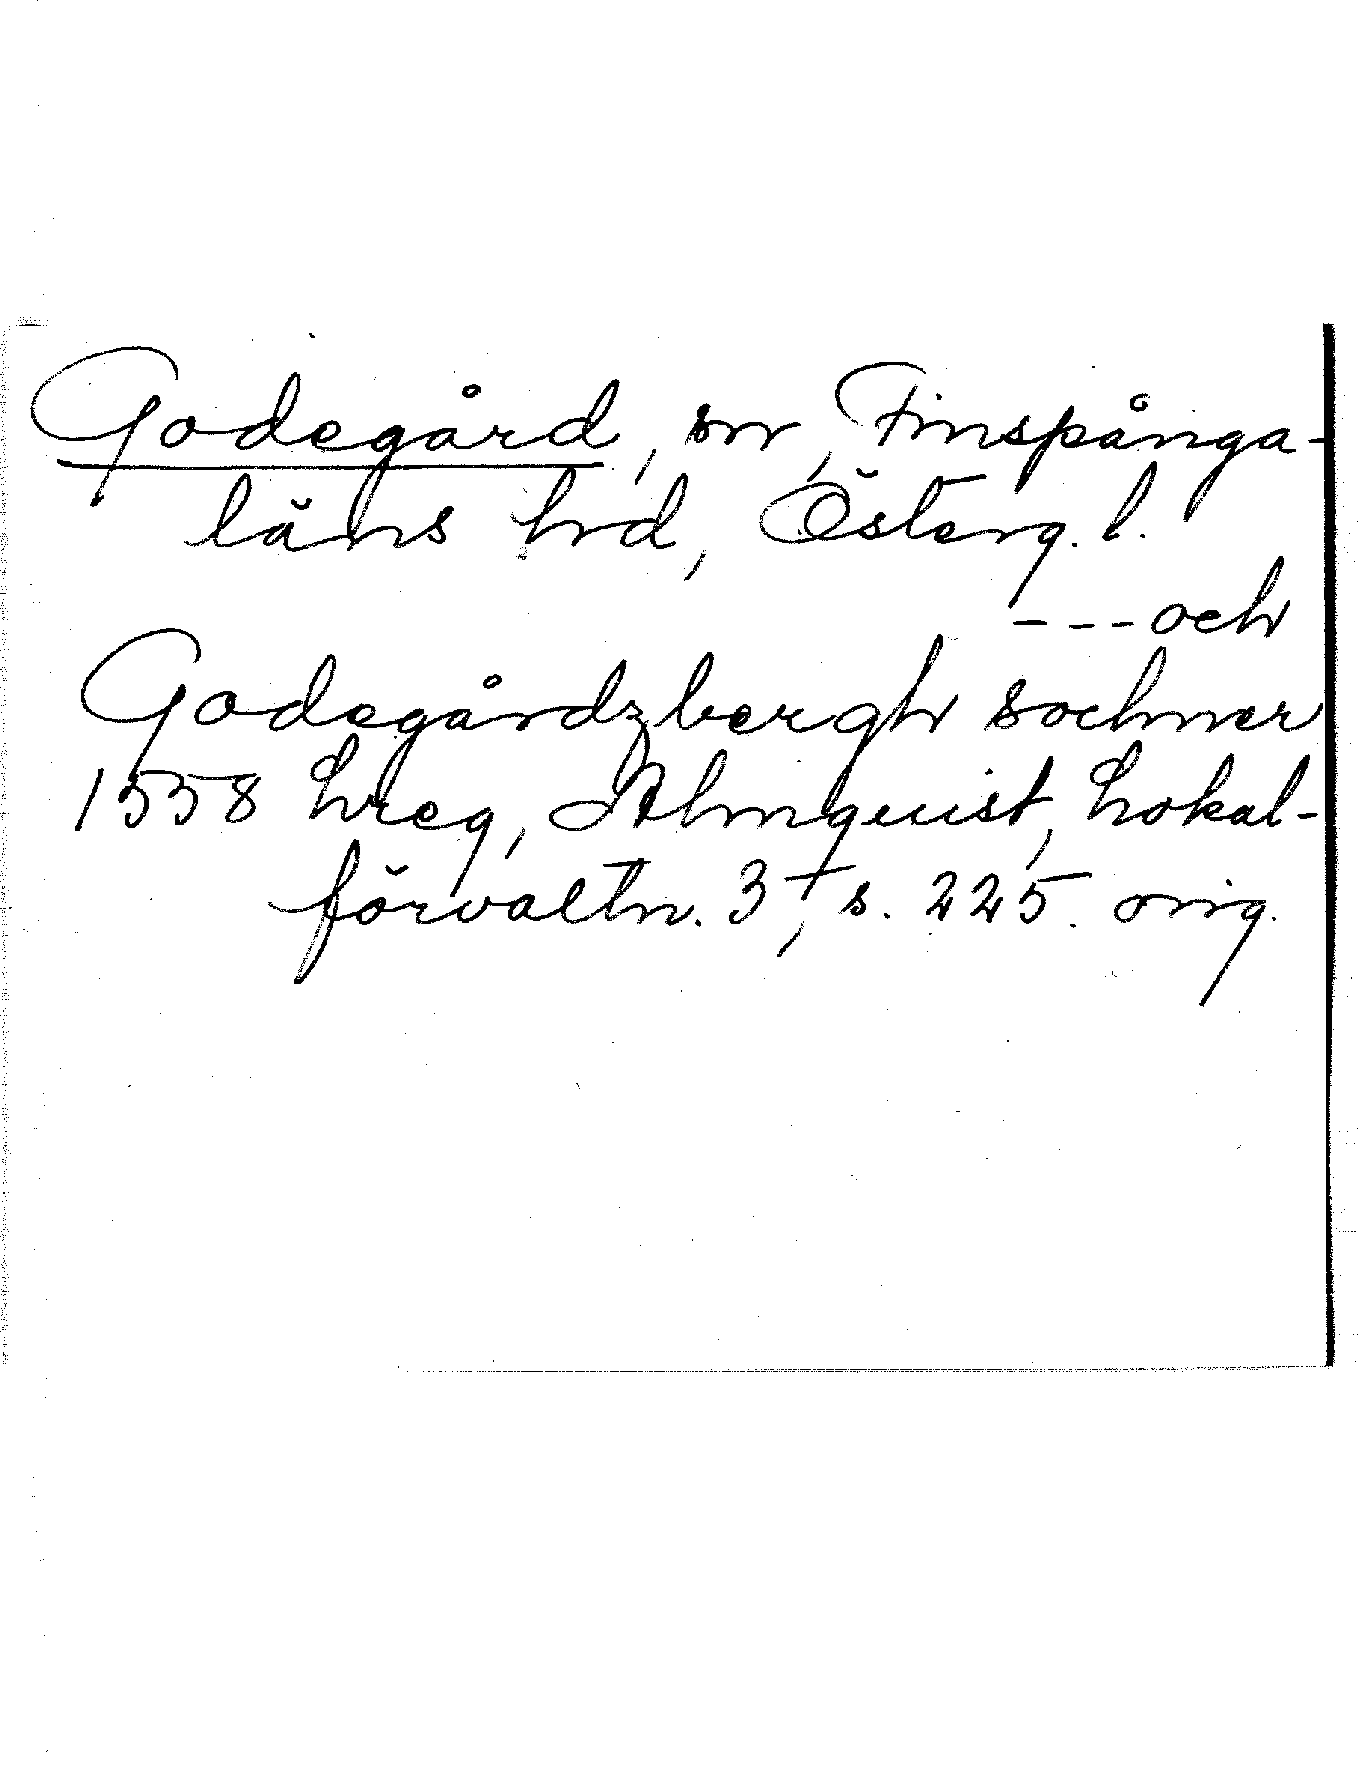 Godegård, sn, Finspånga-
läns hd, Österg. l.
---och
Godegårdzbergh sochner
1558 hreg, Almquist, Lokal-
förvaltn. 3, s. 225. orig.